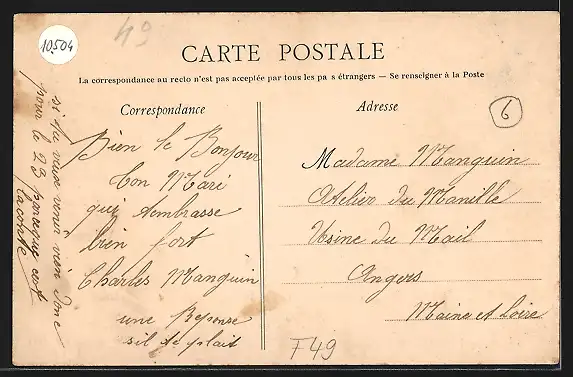 10504
49
CARTE POSTALE
La correspondance au recto n'est pas acceptée par tous les pa s étrangers — Se renseigner à la Poste
Correspondance
Adresse
6
Bien le Bonjour
ton Mari
qui tembrasse
bien fort
Charles Manguin
une Reponse
sil te plait
si tu veux venir vien donc
pour le 23
Madame Manguin
Atelier du Manille
Usine du Mail
Angers
Maine et Loire
F49